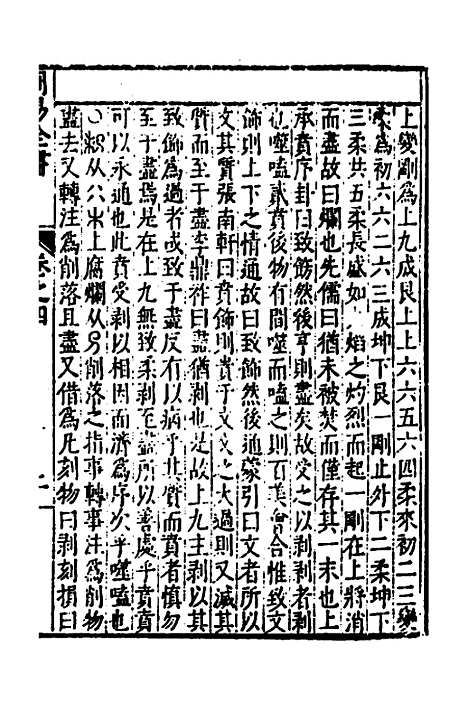 上變剛爲上九成艮上上六六五六四柔來初二三變
柔爲初六六二六三成坤下艮一剛止外下二柔坤下
三柔共五柔長盛如焰之灼烈而起一剛在上將消
而盡故曰爛也先儒曰猶未被焚而僅存其一未也上
承賁序卦曰致飾然後亨則盡矣故受之以剥剥者剥
也噬嗑貳賁後物有間噬而嗑之則百美會合惟致文
飾則上下之情通故曰致飾然後通蒙引曰文者所以
文其質張南軒曰賁飾則貴于文文之大過則又滅其
質而至于盡李鼎祚曰盡猶剥也是故上九主剥以其
致飾爲過者或致于盡反有以病乎其質而賁者慎勿
至于盡焉是在上九無致柔剥至盡所以善處乎賁賁
可以永通也此賁受剥以相因而濟爲序次乎噬嗑也
○剥从六本上腐爛从刀削落之指事轉事注爲削物
盡去又轉注爲削落且盡又借爲凡刻物曰剥刻損曰
周易全書
卷之四